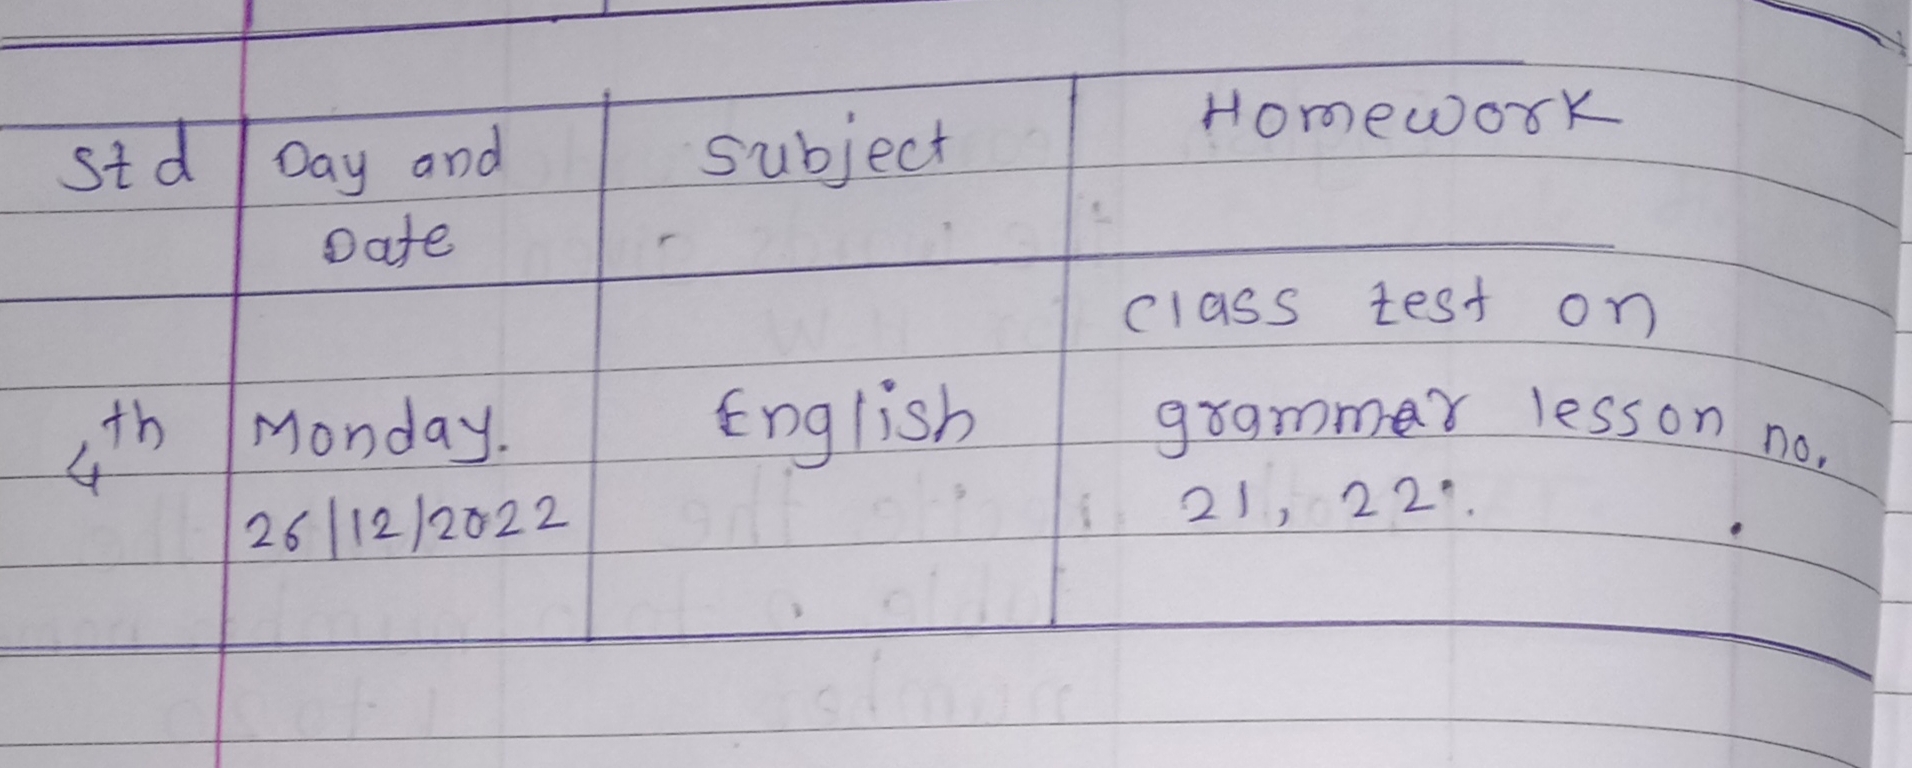 Std Day and Subject Homework
Date
class test on
4th Monday. English grammar lesson no.
26/12/2022 21, 22.